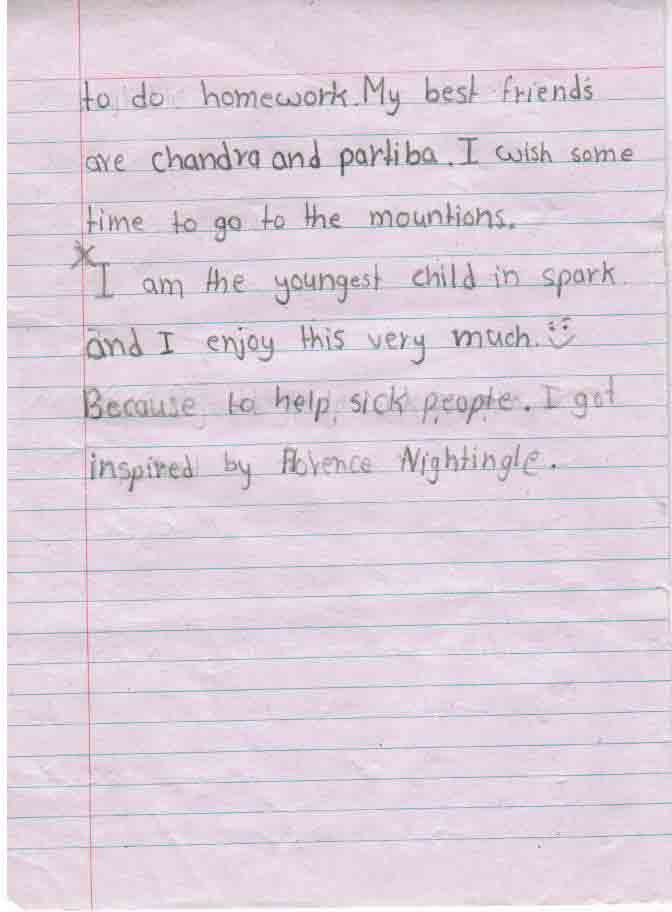 to do homework. My best friends
are chandra and partiba. I wish some
time to go to the mountions.
I am the youngest child in spark
and I enjoy this very much.
Because to help sick people. I got
inspired by Florence Nightingle.